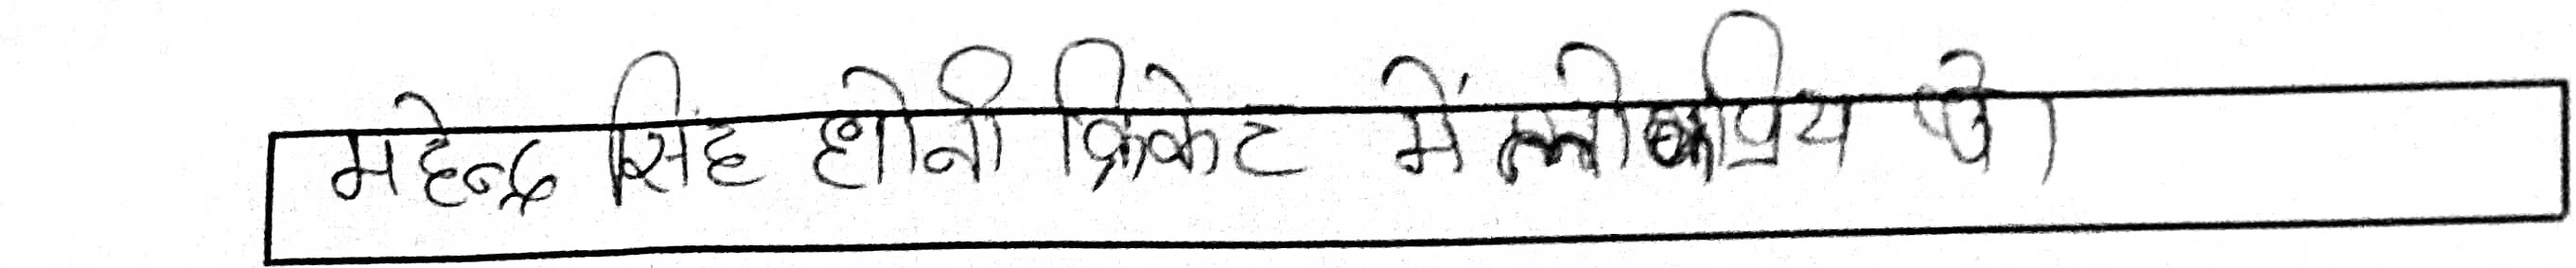 महेन्द्र सिंह धोनी क्रिकेट में लोकप्रिय थे।